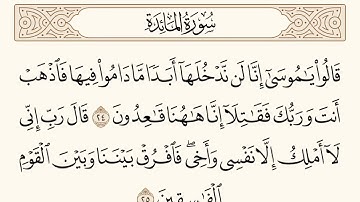 سُورَةُ المَائِدَةِ
قَالُوا۟ يَـٰمُوسَىٰٓ إِنَّا لَن نَّدْخُلَهَآ أَبَدًا مَّا دَامُوا۟ فِيهَا فَٱذْهَبْ
أَنتَ وَرَبُّكَ فَقَـٰتِلَآ إِنَّا هَـٰهُنَا قَـٰعِدُونَ ٢٤ قَالَ رَبِّ إِنِّى
لَآ أَمْلِكُ إِلَّا نَفْسِى وَأَخِى ۖ فَٱفْرُقْ بَيْنَنَا وَبَيْنَ ٱلْقَوْمِ
ٱلْفَـٰسِقِينَ ٢٥